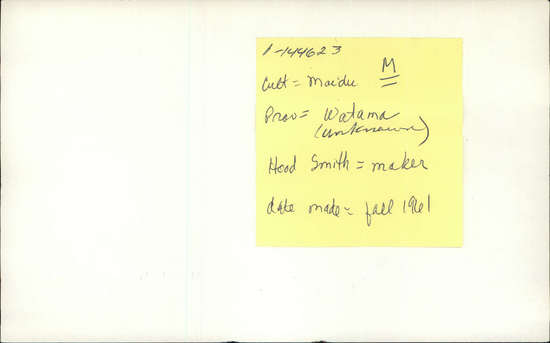 1-144623
M
Cult = Maidu
Prov = Watama
(unknown)
Head Smith = maker
date made = fall 1961